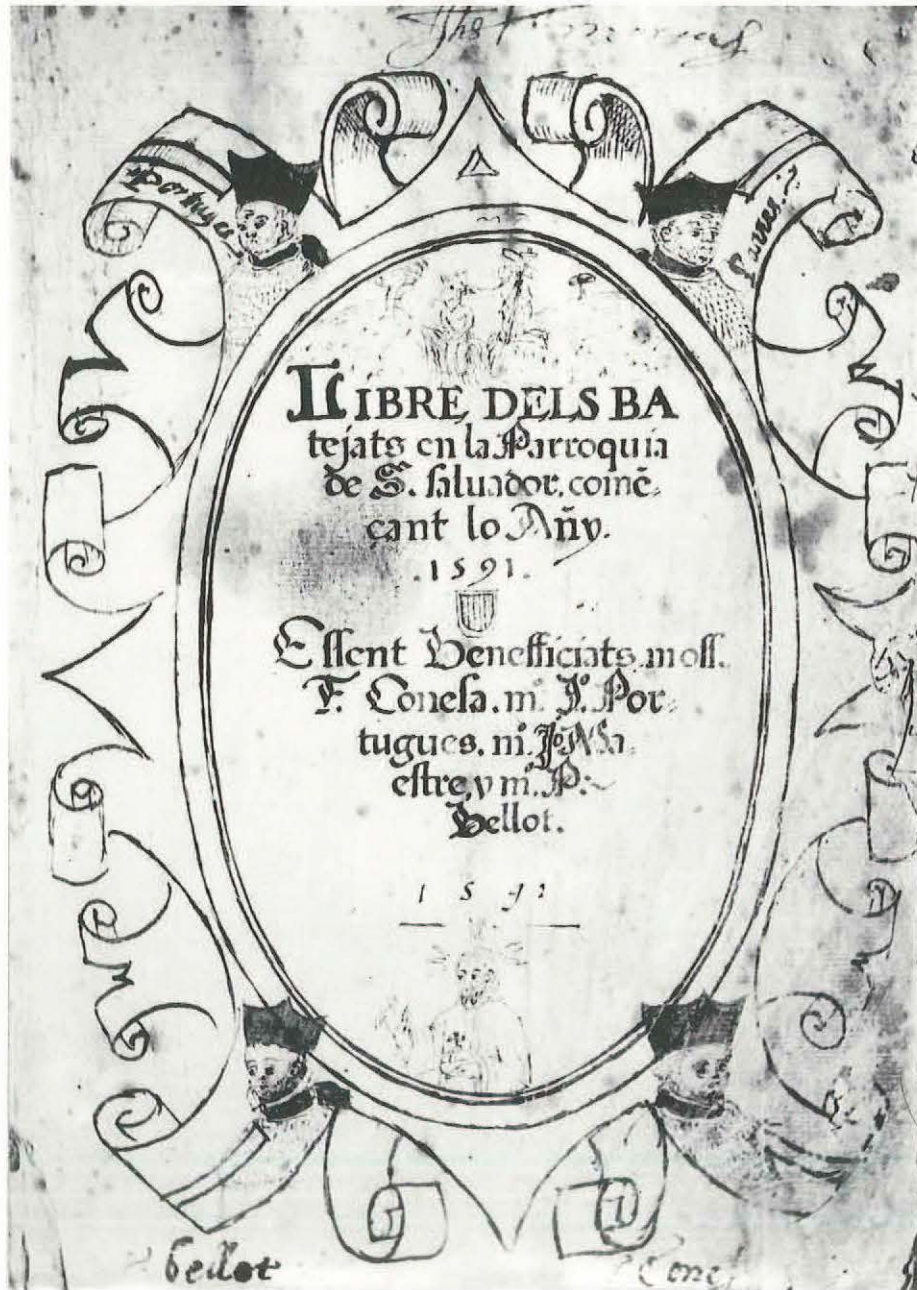 Portugues
LIBRE DELS BA
tejats en la Parroquia
de S. saluador, comē-
çant lo Añy.
.1591.
Essent Benefficiats. moss.
F. Conesa. mº. Jº. Por-
tugues. mº. Jº Ma-
estre, y mº. P.
Bellot.
1591
bellot
Cones